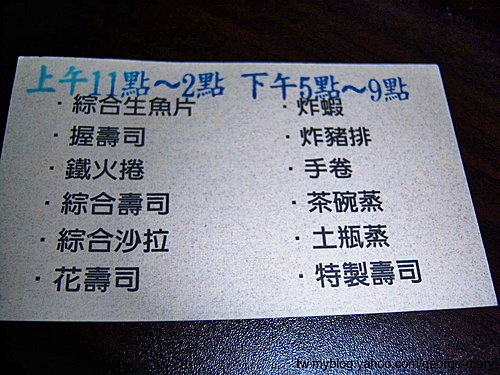 上午11點～2點 下午5點～9點
・綜合生魚片
・握壽司
・鐵火捲
・綜合壽司
・綜合沙拉
・花壽司
・炸蝦
・炸豬排
・手卷
・茶碗蒸
・土瓶蒸
・特製壽司